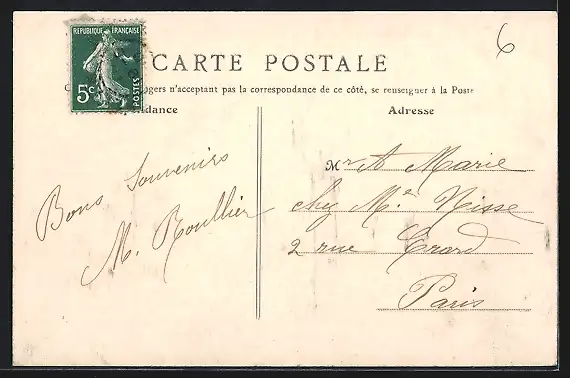 RÉPUBLIQUE FRANÇAISE
5c POSTES
6
CARTE POSTALE
n'acceptant pas la correspondance de ce côté, se renseigner à la Poste
Adresse
Bons Souvenirs
M. Roullier
Mr A Marie
chez Me Nisse
2 rue Erard
Paris